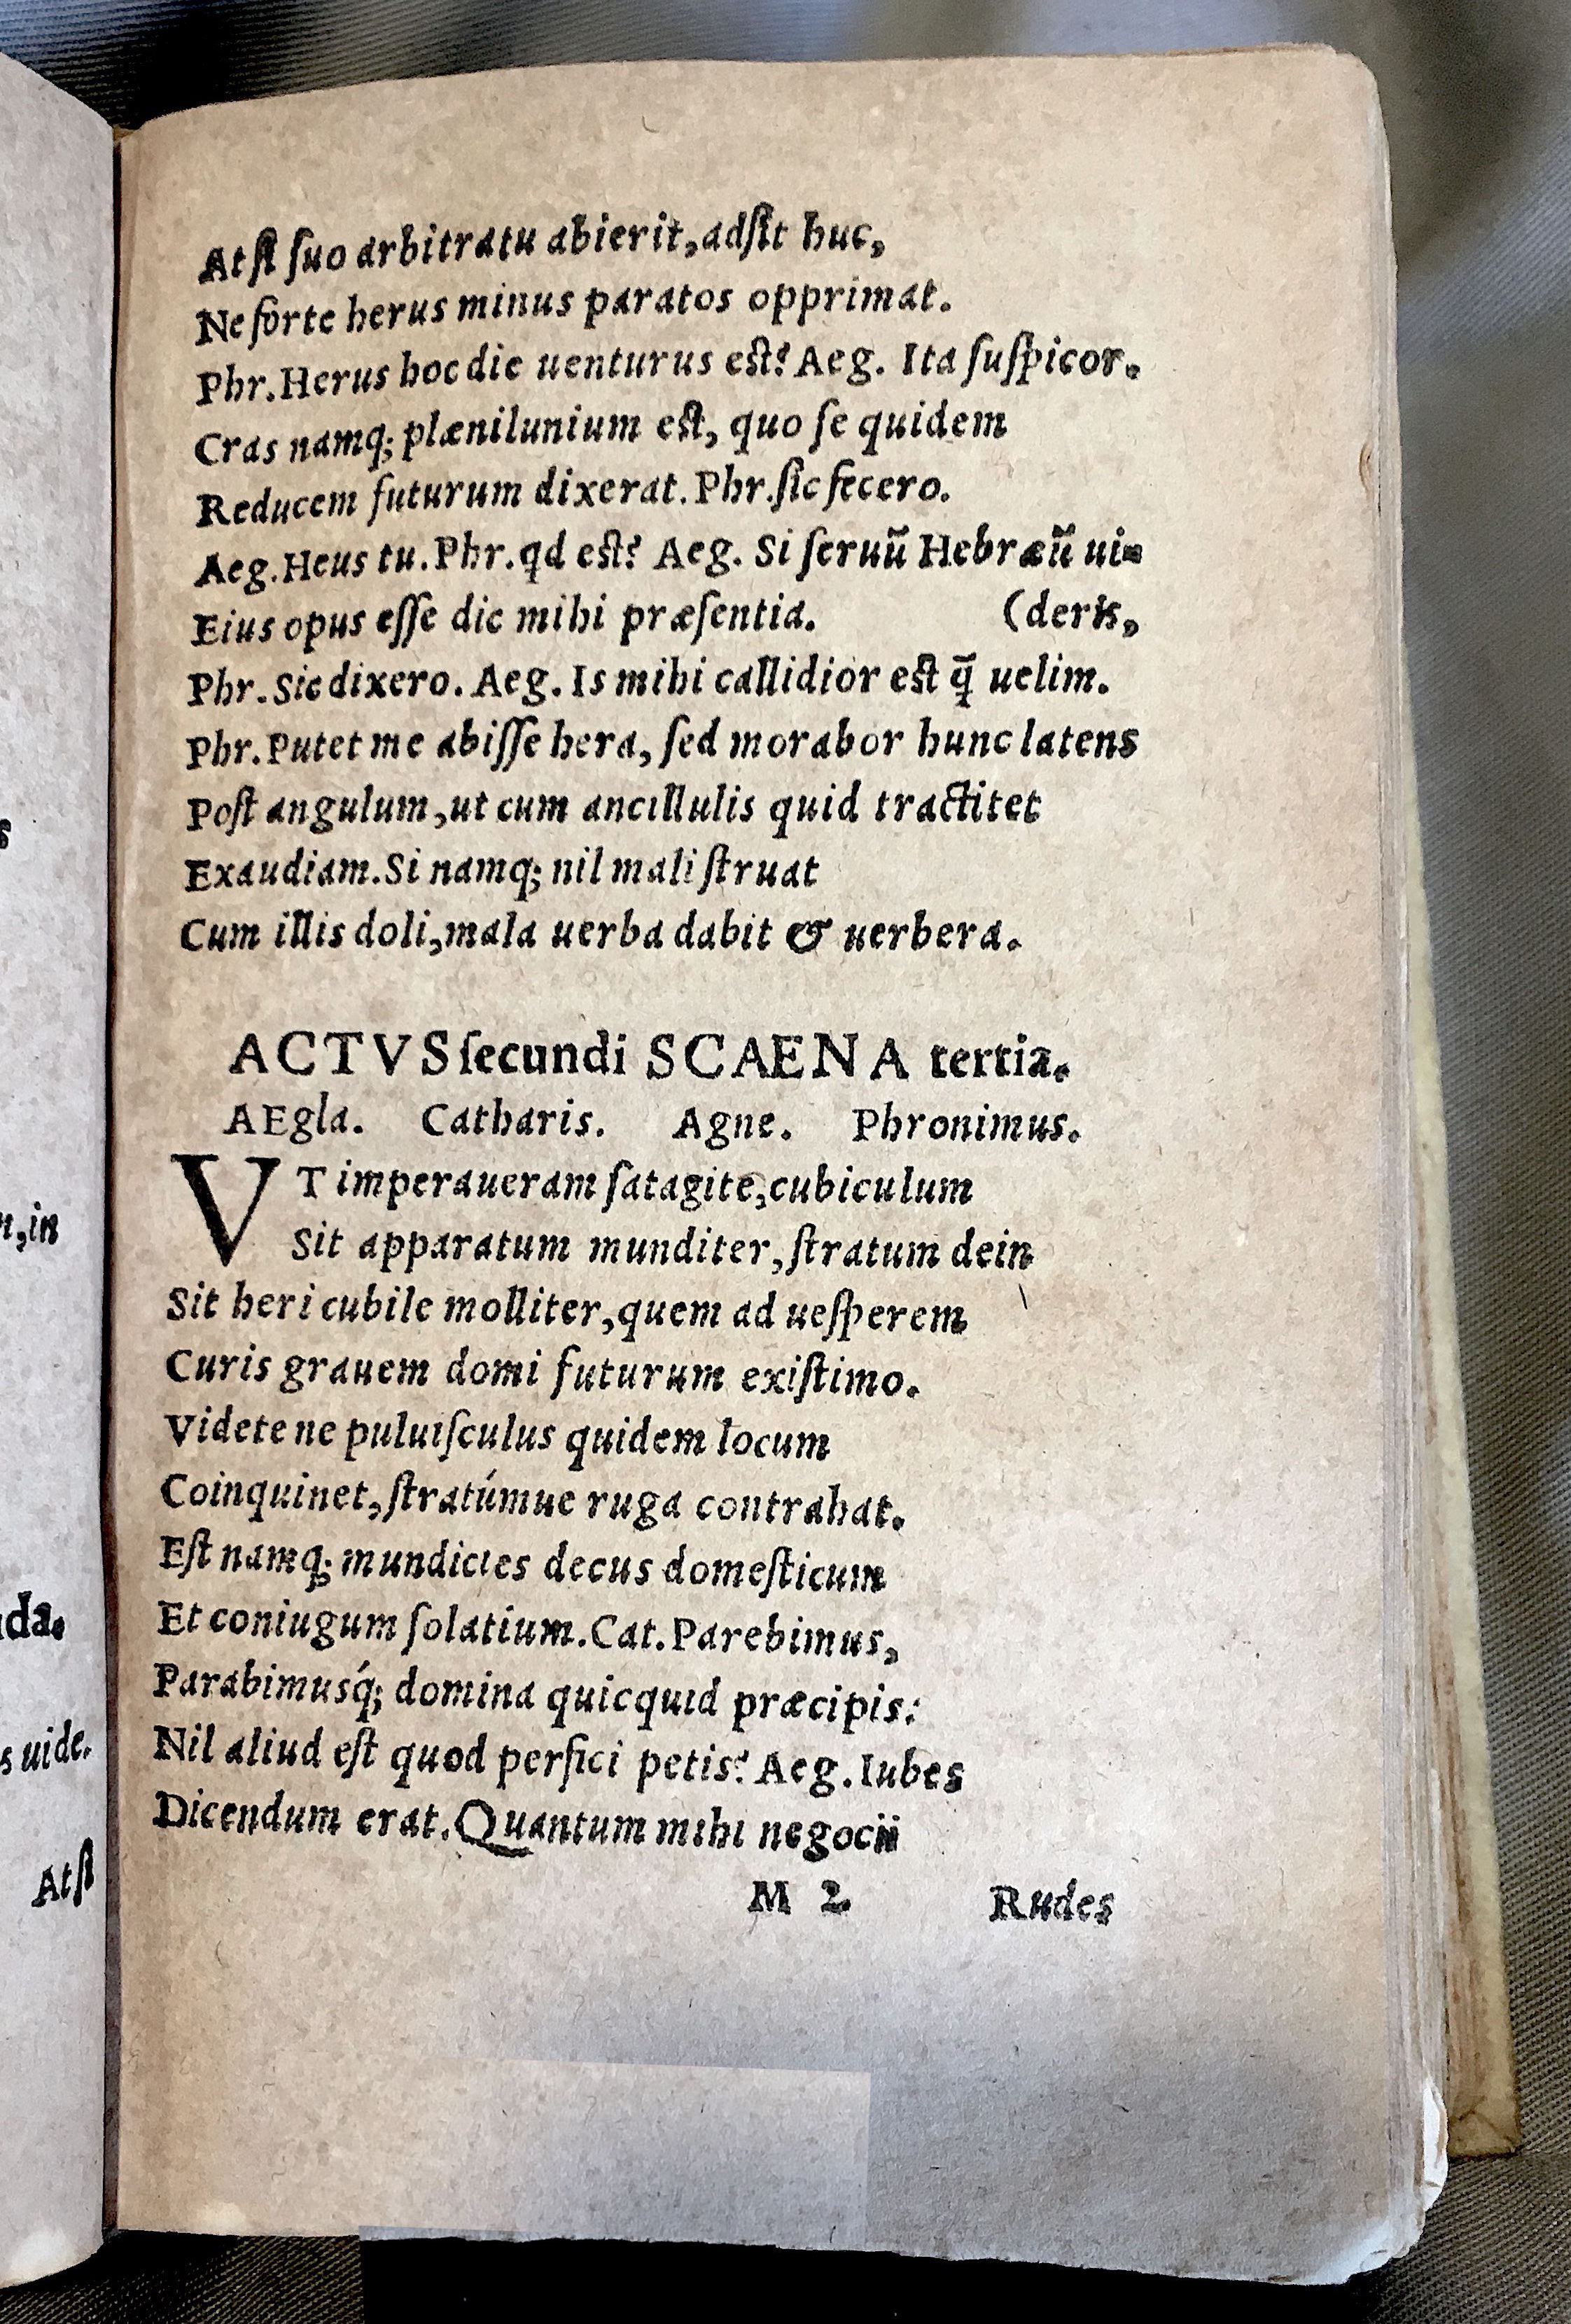 At st suo arbitratu abierit, adsit huc,
Ne forte herus minus paratos opprimat.
Phr. Herus hoc die uenturus est? Aeg. Ita suspicor.
Cras namq; plænilunium est, quo se quidem
Reducem futurum dixerat. Phr. sic fecero.
Aeg. Heus tu. Phr. qd est? Aeg. Si seruū Hebræū ui=
Eius opus esse dic mihi præsentia. (deris,
Phr. Sic dixero. Aeg. Is mihi callidior est q̄ uelim.
Phr. Putet me abisse hera, sed morabor hunc latens
Post angulum, ut cum ancillulis quid tractitet
Exaudiam. Si namq; nil mali struat
Cum illis doli, mala uerba dabit & uerbera.
ACTVS secundi SCAENA tertia.
AEgla. Catharis. Agne. Phronimus.
VT imperaueram satagite, cubiculum
Sit apparatum munditer, stratum dein
Sit heri cubile molliter, quem ad uesperem
Curis grauem domi futurum existimo.
Videte ne puluisculus quidem locum
Coinquinet, stratúmue ruga contrahat.
Est namq; mundicies decus domesticum
Et coniugum solatium. Cat. Parebimus,
Parabimusq́; domina quicquid præcipis:
Nil aliud est quod perfici petis? Aeg. Iubes
Dicendum erat. Quantum mihi negocii
M 2 Rudes
s
n, in
da.
s uide.
At st